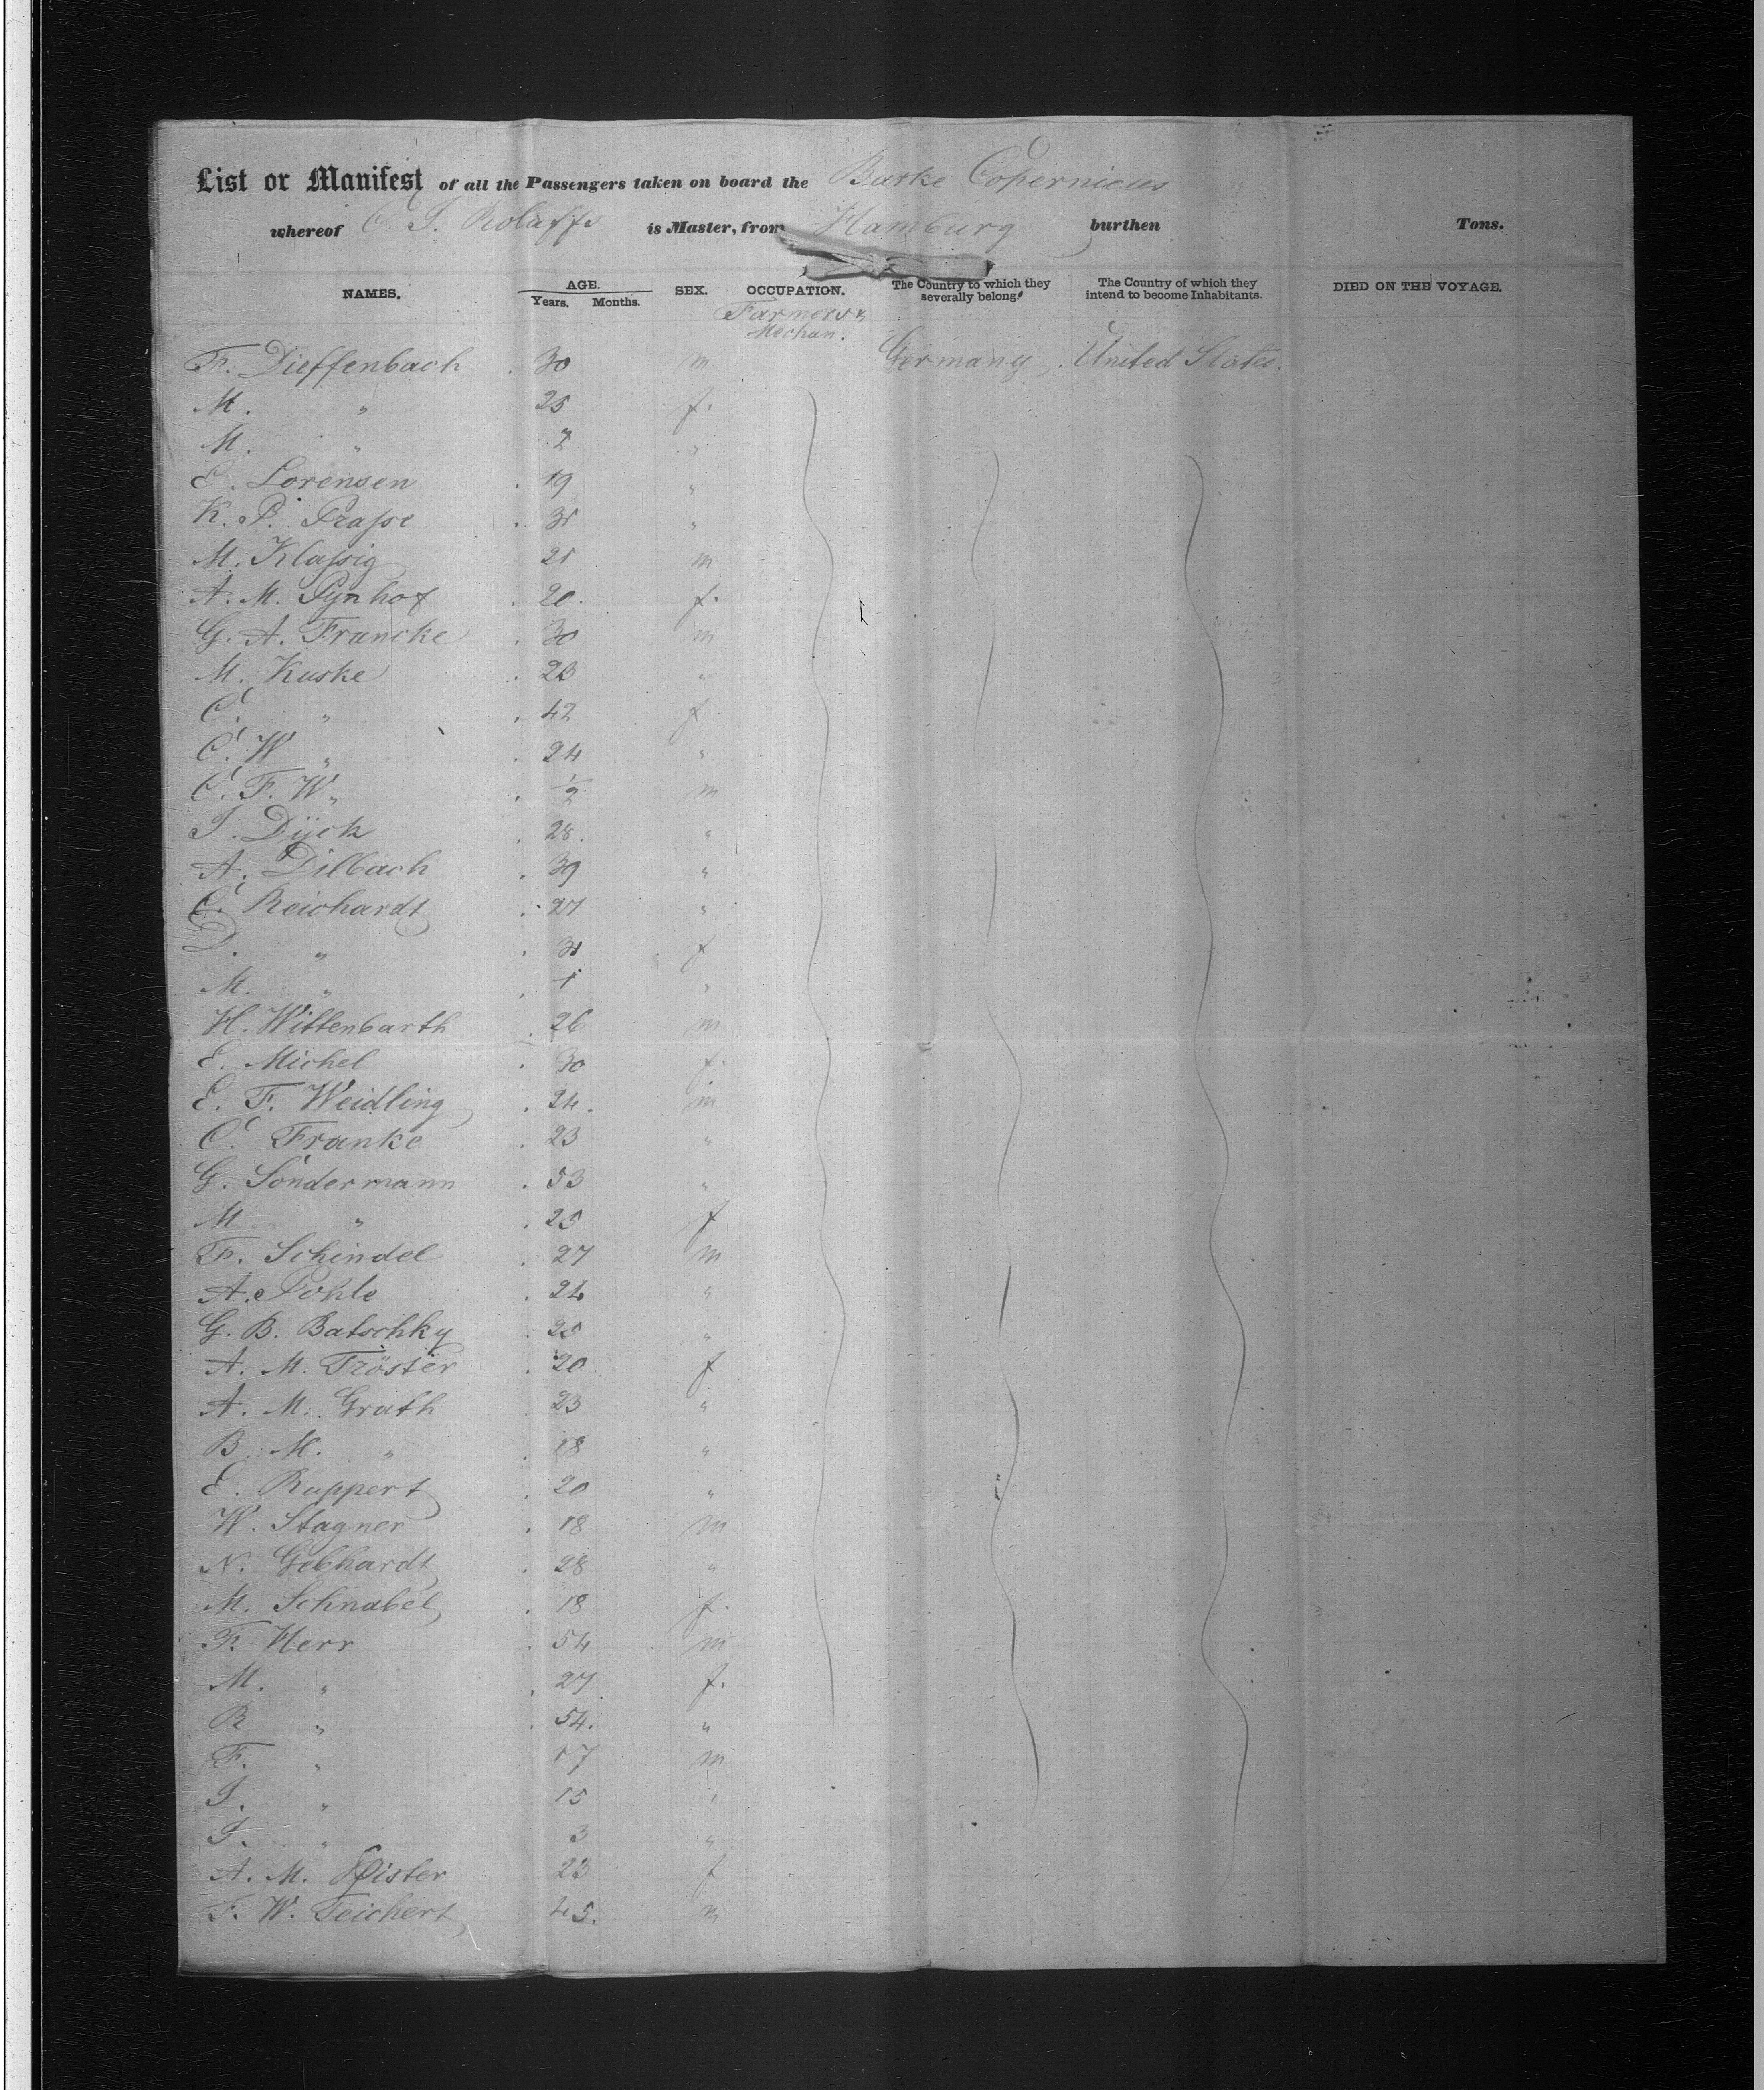 List or Manifest of all the Passengers taken on board the Barke Copernicus
whereof C. J. Rolaffs is Master, from Hamburg burthen Tons.
NAMES. AGE. Years. Months. SEX. OCCUPATION. The Country to which they severally belong. The Country of which they intend to become Inhabitants. DIED ON THE VOYAGE.
Farmers &
Mechan.
F. Dieffenbach . 30 m Germany . United States.
M. " 25 f.
M. " 2 "
E. Lorensen . 19 "
K. P. Praſse . 31 "
M. Klaſsig 21 m
A. M. Pynhof . 20. f.
G. A. Francke . 30 m
M. Kuske . 23 "
C. " . 42 f
C. W " . 24 "
C. F. W " . 1/2 m
J. Dÿck . 28. "
A. Dilbach . 39 "
C. Reichardt . 27 "
D. " . 31 f
M. " . 1 "
H. Wittenbarth . 26 m
E. Michel . 30 f.
E. F. Weidling . 24. m
C. Franke . 23 "
G. Sondermann . 53 "
M " . 25 f
F. Schindel . 27 m
A. Pohle . 24 "
G. B. Batschky . 25 "
A. M. Tröster . 20 f
A. M. Grath . 23 "
B. M. " . 18 "
E. Ruppert . 20 "
W. Stagner . 18 m
N. Gebhardt . 28 "
M. Schnabel . 18 f.
F. Herr . 54 m
M. " . 27 f.
R " . 54. "
F. " 17 m
J. " 15 "
J. " 3 "
A. M. 23 f
F. W. Teichert 45. m